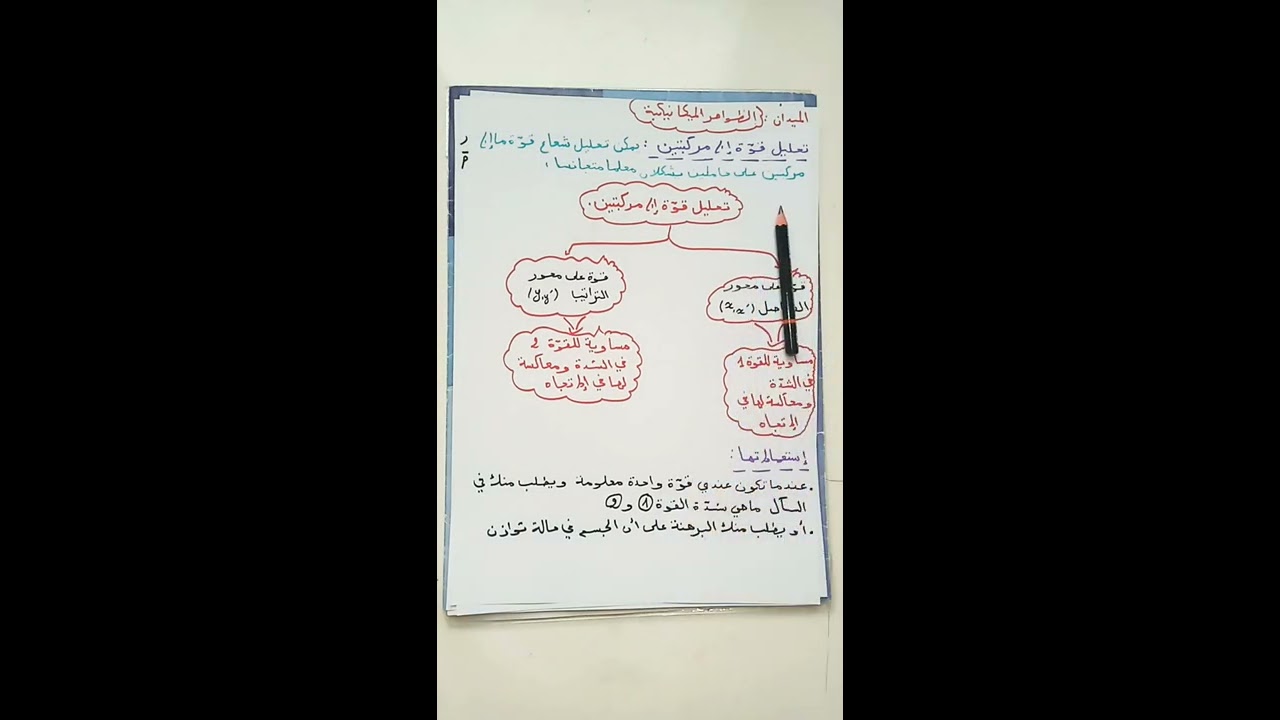 الميدان : الظواهر الميكانيكية
تحليل قوّة إلى مركبتين : يمكن تحليل شعاع قوّة ما إلى
مركبتين على حاملين يشكلان معلما متجانسا :
تحليل قوّة إلى مركبتين .
قوة على محور
(x,x')
قوة على محور
التراتيب (y,y')
مساوية للقوة 1
في الشدّة
ومعاكسة لها في
الإتجاه
مساوية للقوّة 2
في الشدة ومعاكسة
لها في الإتجاه
إستعمالاتها :
. عندما تكون عندي قوّة واحدة معلومة ويطلب منك في
السؤال ماهي شدّة القوة 1 و 2
. أو يطلب منك البرهنة على أن الجسم في حالة توازن